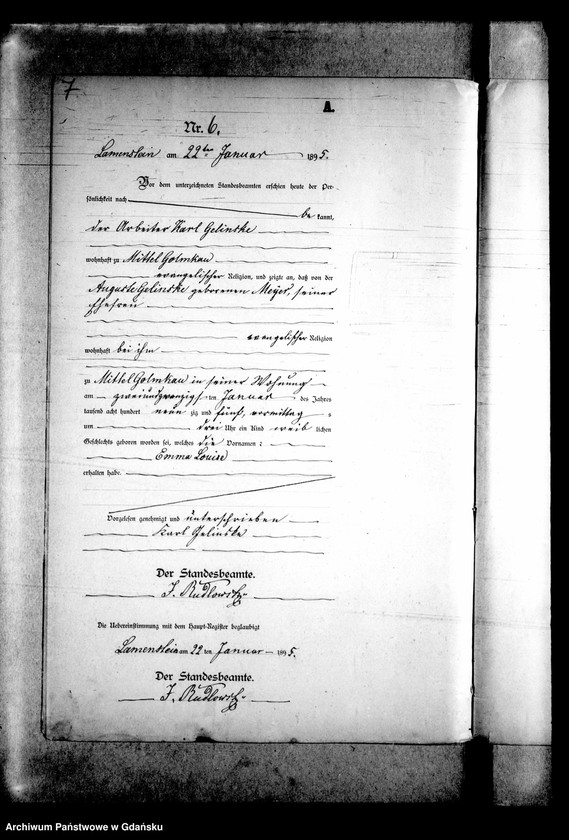 7
A.
Nr. 6.
Lamenstein am 22ten Januar 1895.
Vor dem unterzeichneten Standesbeamten erschien heute der Per-
sönlichkeit nach
be kannt,
der Arbeiter Karl Gelinske
wohnhaft zu Mittel Golmkau
evangelischer Religion, und zeigte an, daß von der
Auguste Gelinske geborenen Meyer, seiner
Ehefrau
evangelischer Religion
wohnhaft bei ihm
zu Mittel Golmkau in seiner Wohnung
am zweiundzwanzigsten Januar des Jahres
tausend acht hundert neun zig und fünf, vormittags
um drei Uhr ein Kind weib lichen
Geschlechts geboren worden sei, welches die Vornamen:
Emma Louise
erhalten habe.
Vorgelesen genehmigt und unterschrieben
Karl Gelinske
Der Standesbeamte.
J. Rudlowsky
Die Uebereinstimmung mit dem Haupt-Register beglaubigt
Lamenstein am 22 ten Januar 1895.
Der Standesbeamte.
J. Rudlowsky
Archiwum Państwowe w Gdańsku